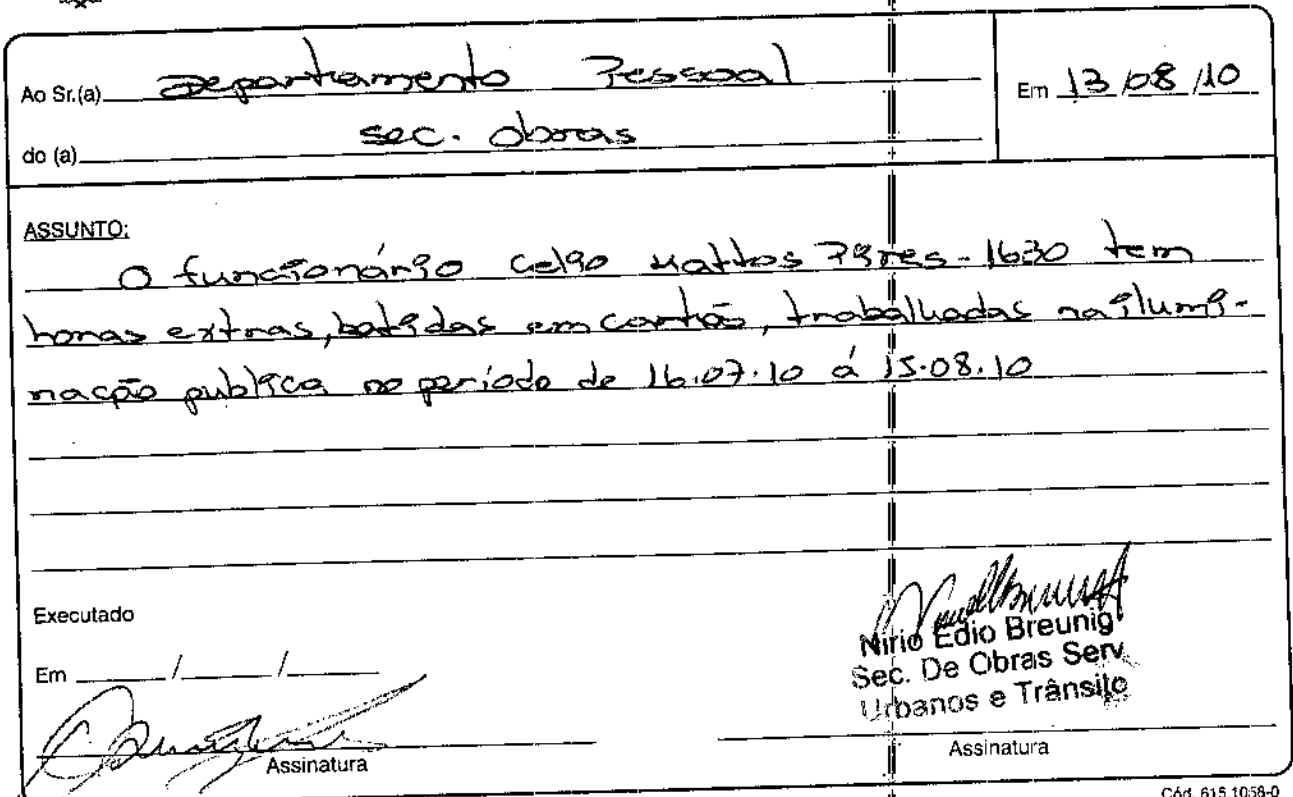 Ao Sr.(a) Departamento Pessoal
Em 13/08/10
do (a) sec. obras
ASSUNTO:
O funcionário Celso Mattos Pires - 1630 tem
horas extras, batidas em cartão, trabalhadas na ilumi-
nação publica no período de 16.07.10 á 15.08.10
Executado
Em ___/___/___
Nirio Edio Breunig
Sec. De Obras Serv.
Urbanos e Trânsito
Assinatura
Assinatura
Cód. 615.1058-0